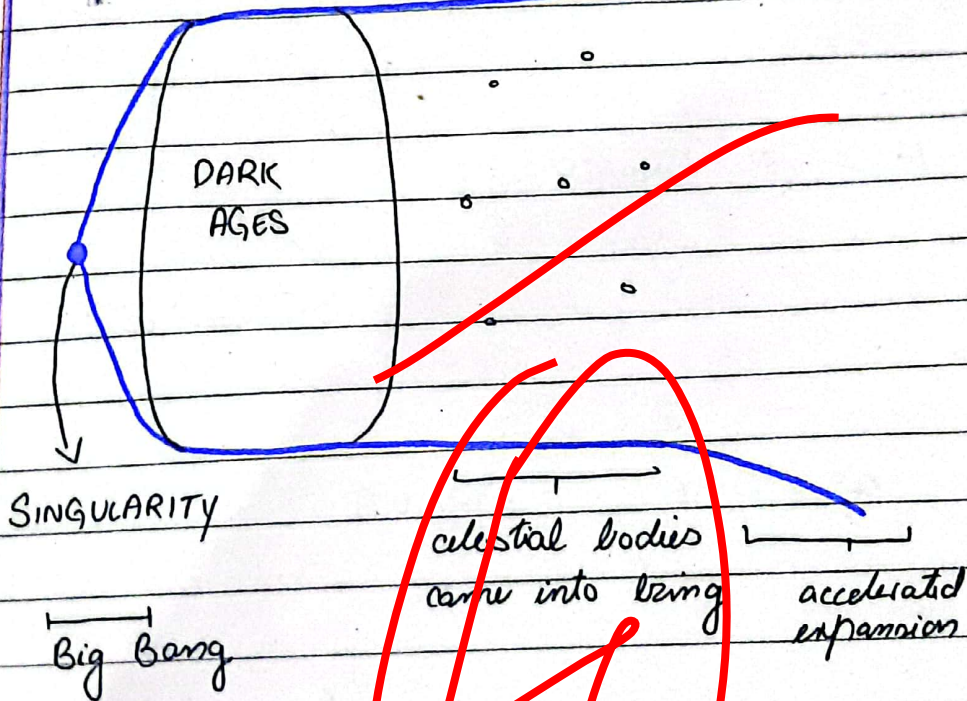 DARK
AGES
SINGULARITY
celestial bodies
came into being
accelerated
expansion
Big Bang